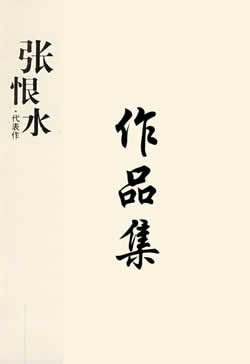 张恨水
·代表作
作品集